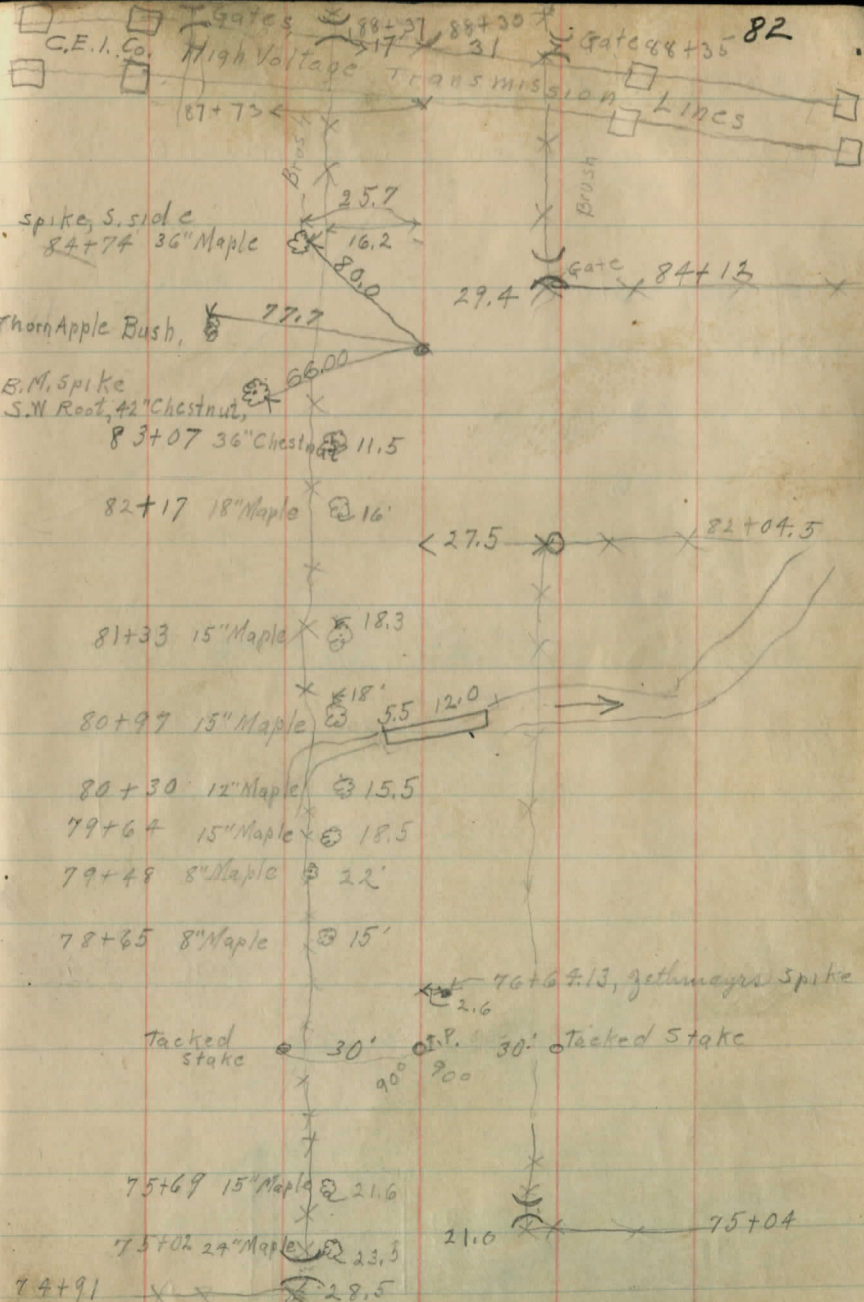 82
Gates 88+37 88+30
C.E.I. Co. High Voltage 17 31 Gate 88+35
Transmission Lines
87+73
Brush
Brush
25.7
spike, S. side
84+74 36" Maple 16.2
80.0
29.4 Gate 84+12
Thorn Apple Bush, 77.7
66.00
B.M. Spike
S.W Root, 42" Chestnut,
83+07 36" Chestnut 11.5
82+17 18" Maple 16'
27.5 82+04.5
81+33 15" Maple 18.3
18'
80+97 15" Maple 5.5 12.0
80+30 12" Maple 15.5
79+64 15" Maple 18.5
79+48 8" Maple 22'
78+65 8" Maple 15'
76+64.13, Zethmayrs Spike
2.6
Tacked Stake 30' I.P. 30' Tacked Stake
90° 90°
75+69 15" Maple 21.6
21.0 75+04
75+02 24" Maple 23.5
74+91 28.5